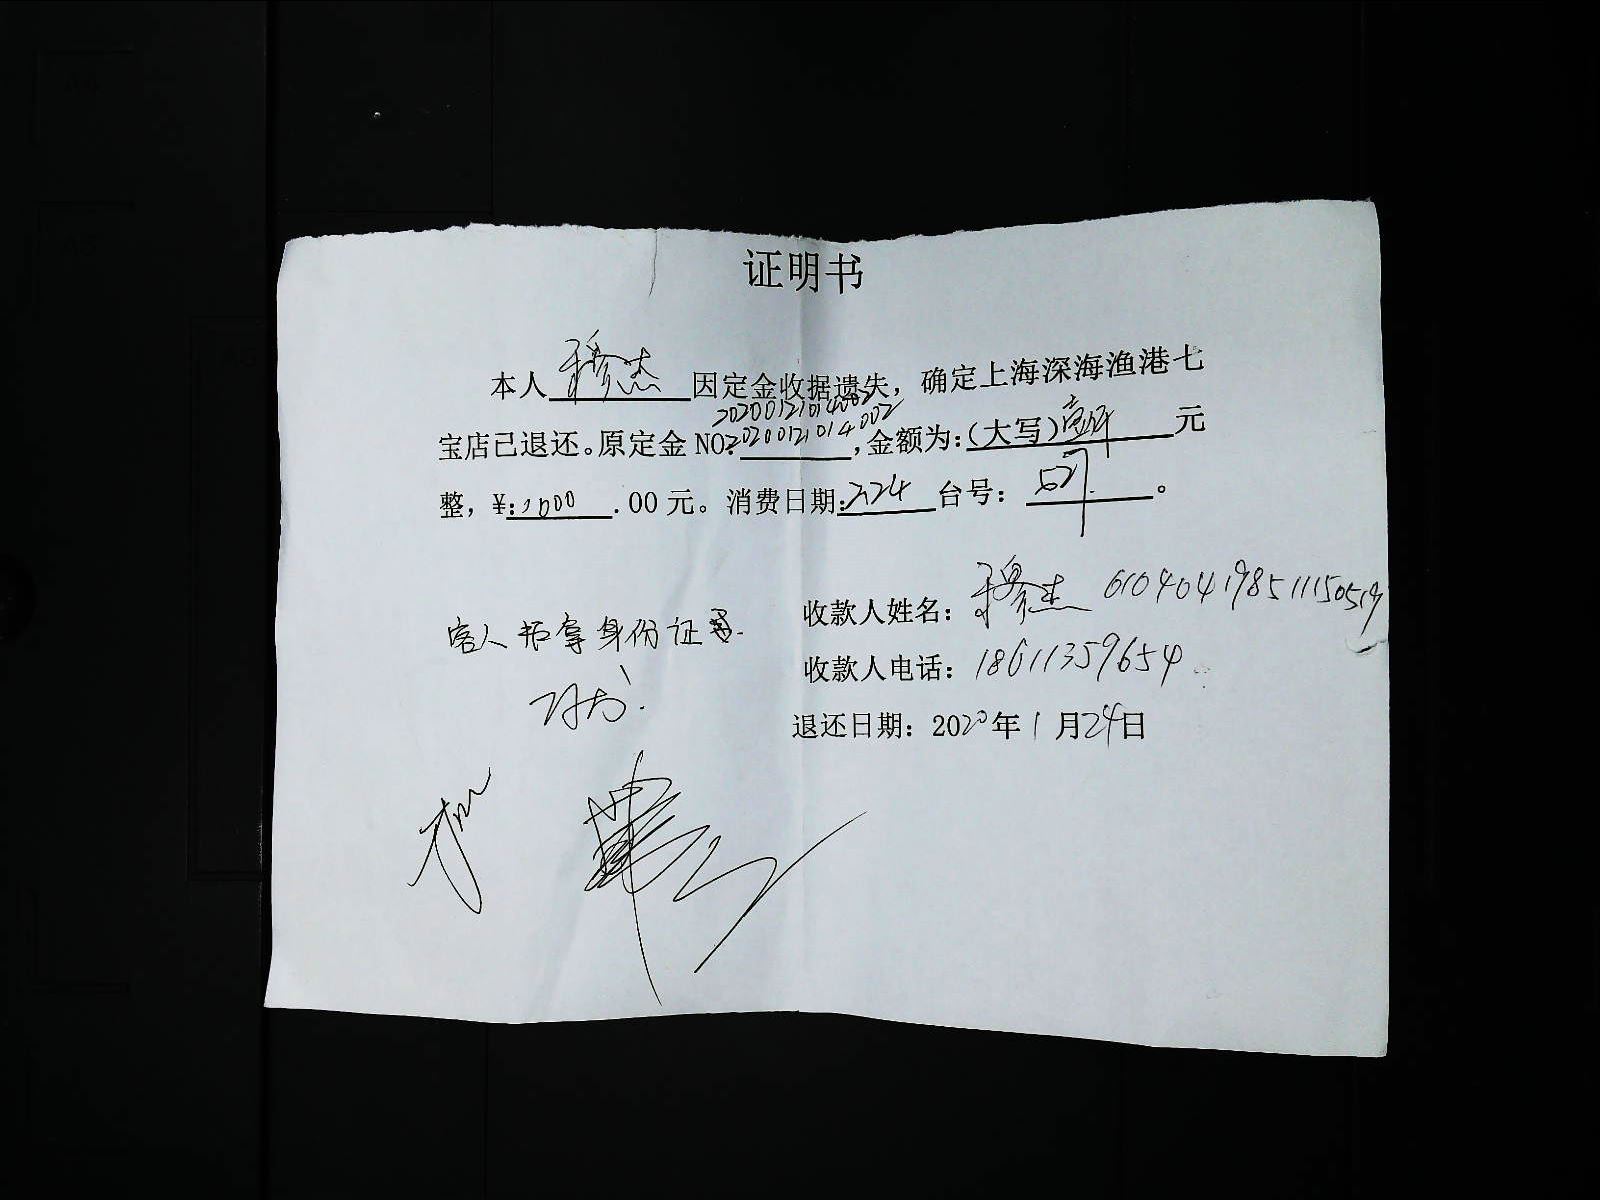 证明书
本人穆杰因定金收据遗失，确定上海深海渔港七
20200121014002
宝店已退还。原定金NO:20200121014002，金额为：（大写）壹仟元
整，¥:1000.00元。消费日期:2.24台号：527.。
收款人姓名：穆杰 610404198511150519
客人拒拿身份证
收款人电话：18611359654
退还日期：2020年1月24日